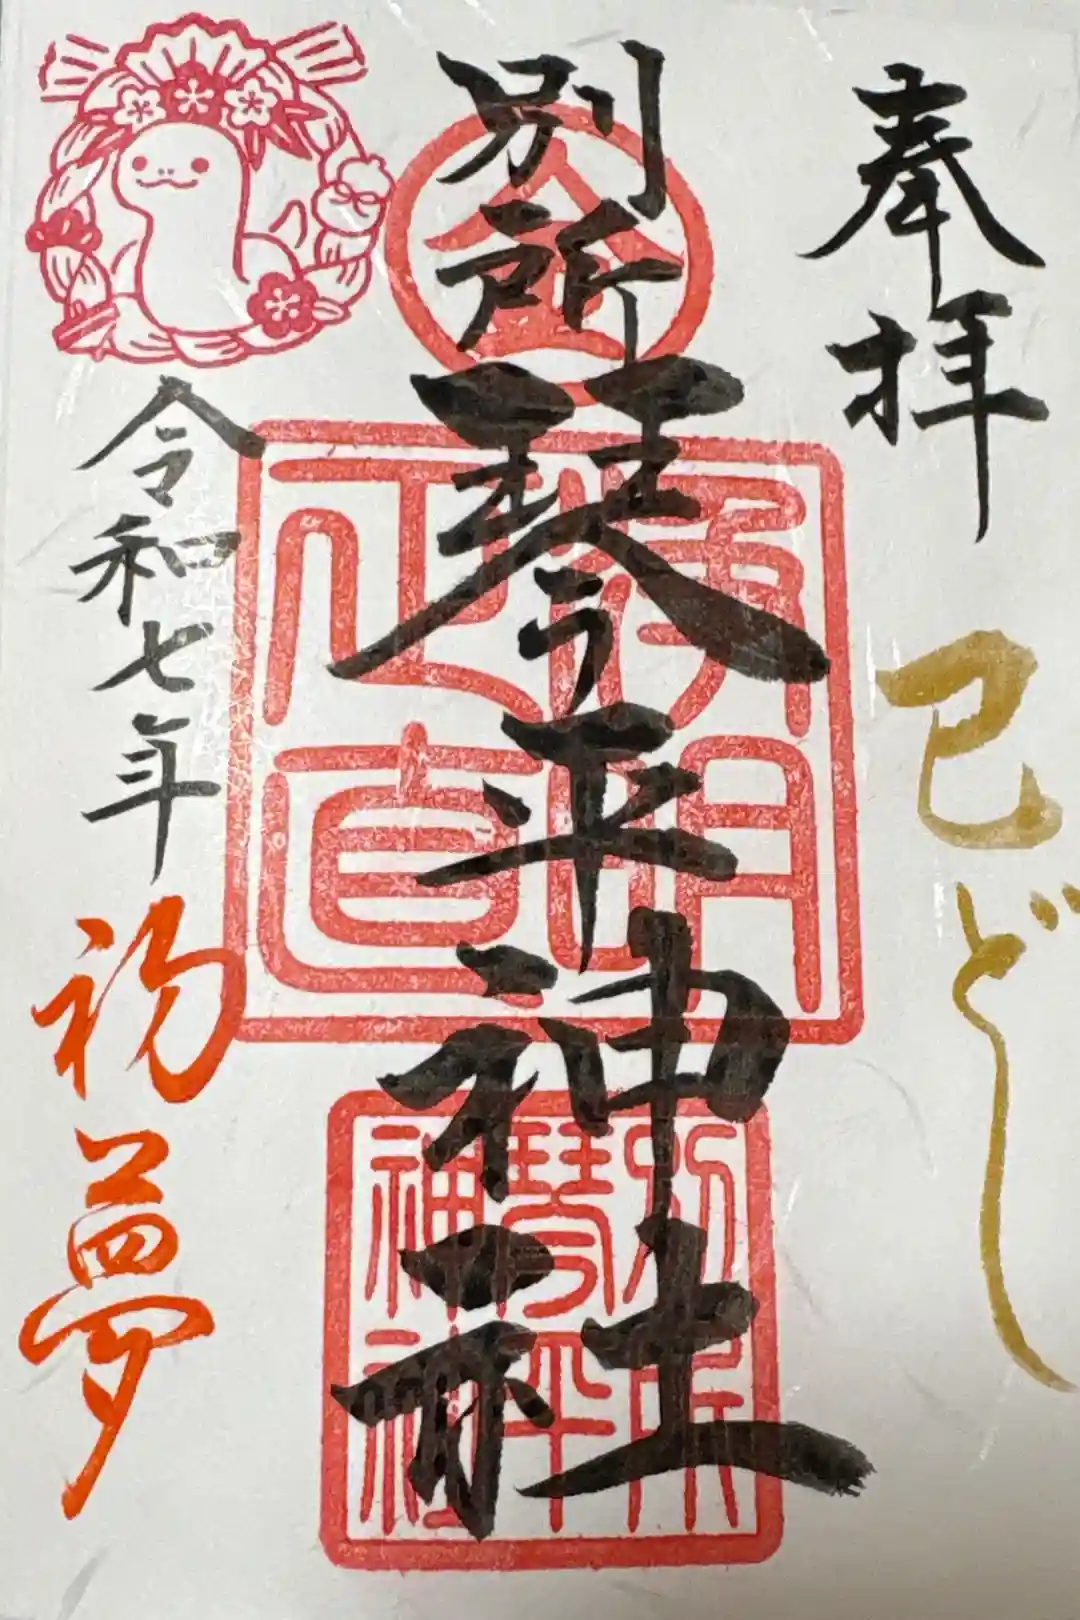 奉拝
巳どし
別所琴平神社
金
浄明
正直
別所
琴平
神社
令和七年
初夢